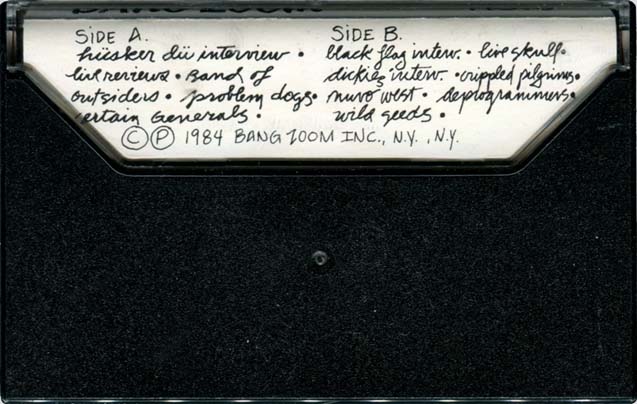 SIDE A.
hüsker dü interview •
live reviews • Band of
outsiders • problem dogs •
certain Generals •
SIDE B.
black flag interw. • live skull •
dickies interw. • crippled pilgrims •
nuvo west • deprogrammers •
wild seeds •
© Ⓟ 1984 BANG ZOOM INC., N.Y., N.Y.